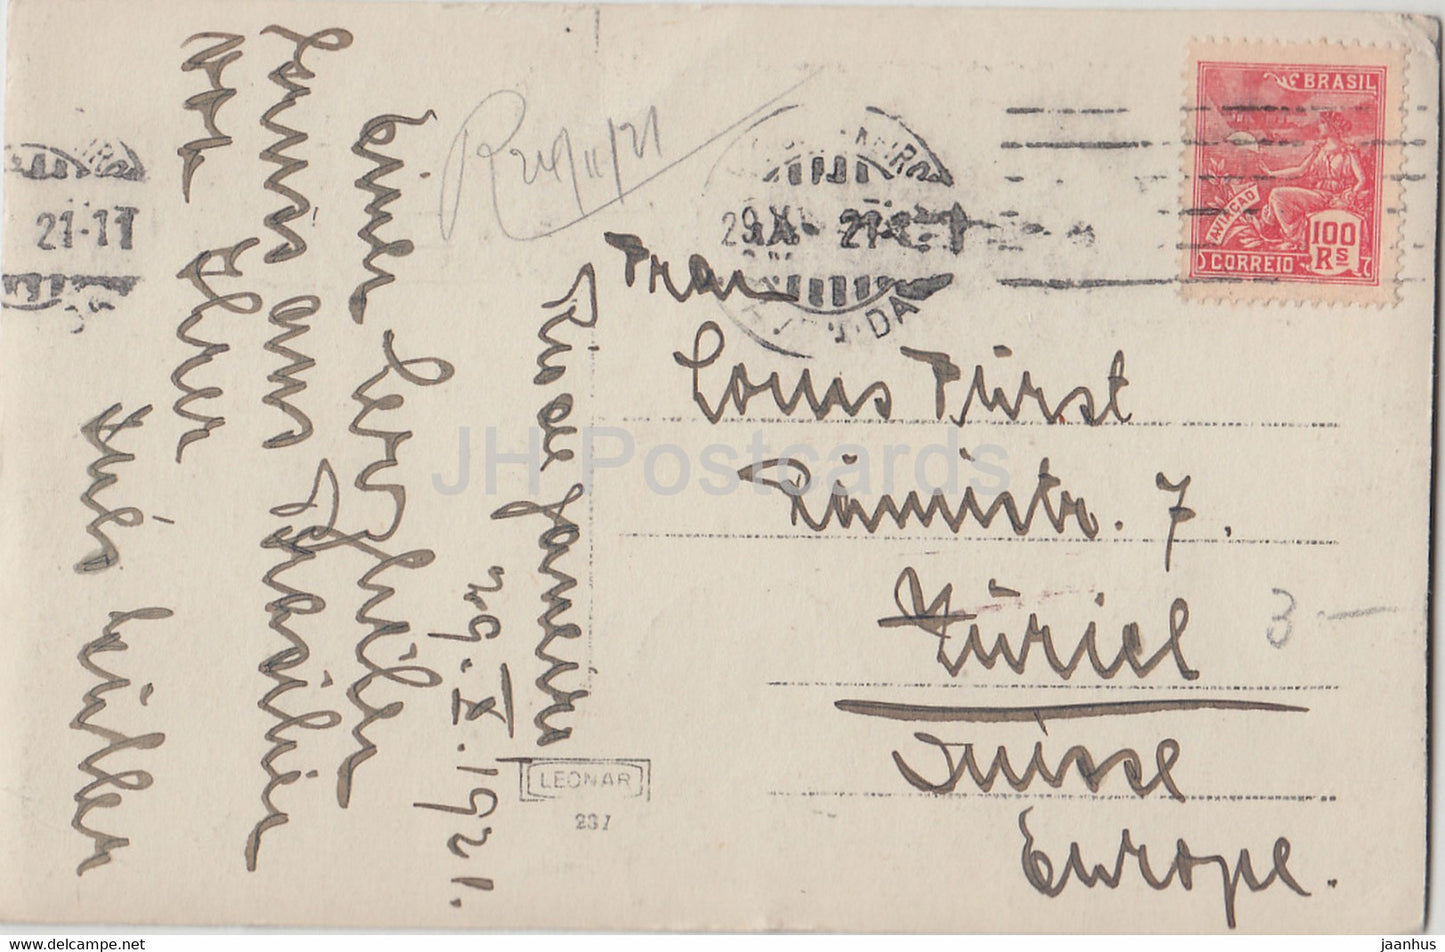 Rio de Janeiro
29. X. 1921.
Einen herzlichen
Gruss aus Brasilien
von Eurer
R 24/11/21
Frau
Louis Fürst
Rämistr. 7.
Zürich
Suisse
Europe.
BRASIL
AVIAÇÃO
100
Rs
CORREIO
29 XI 21
21-11
3-
LEONAR
231
JH Postcards
www.delcampe.net
jaanhus